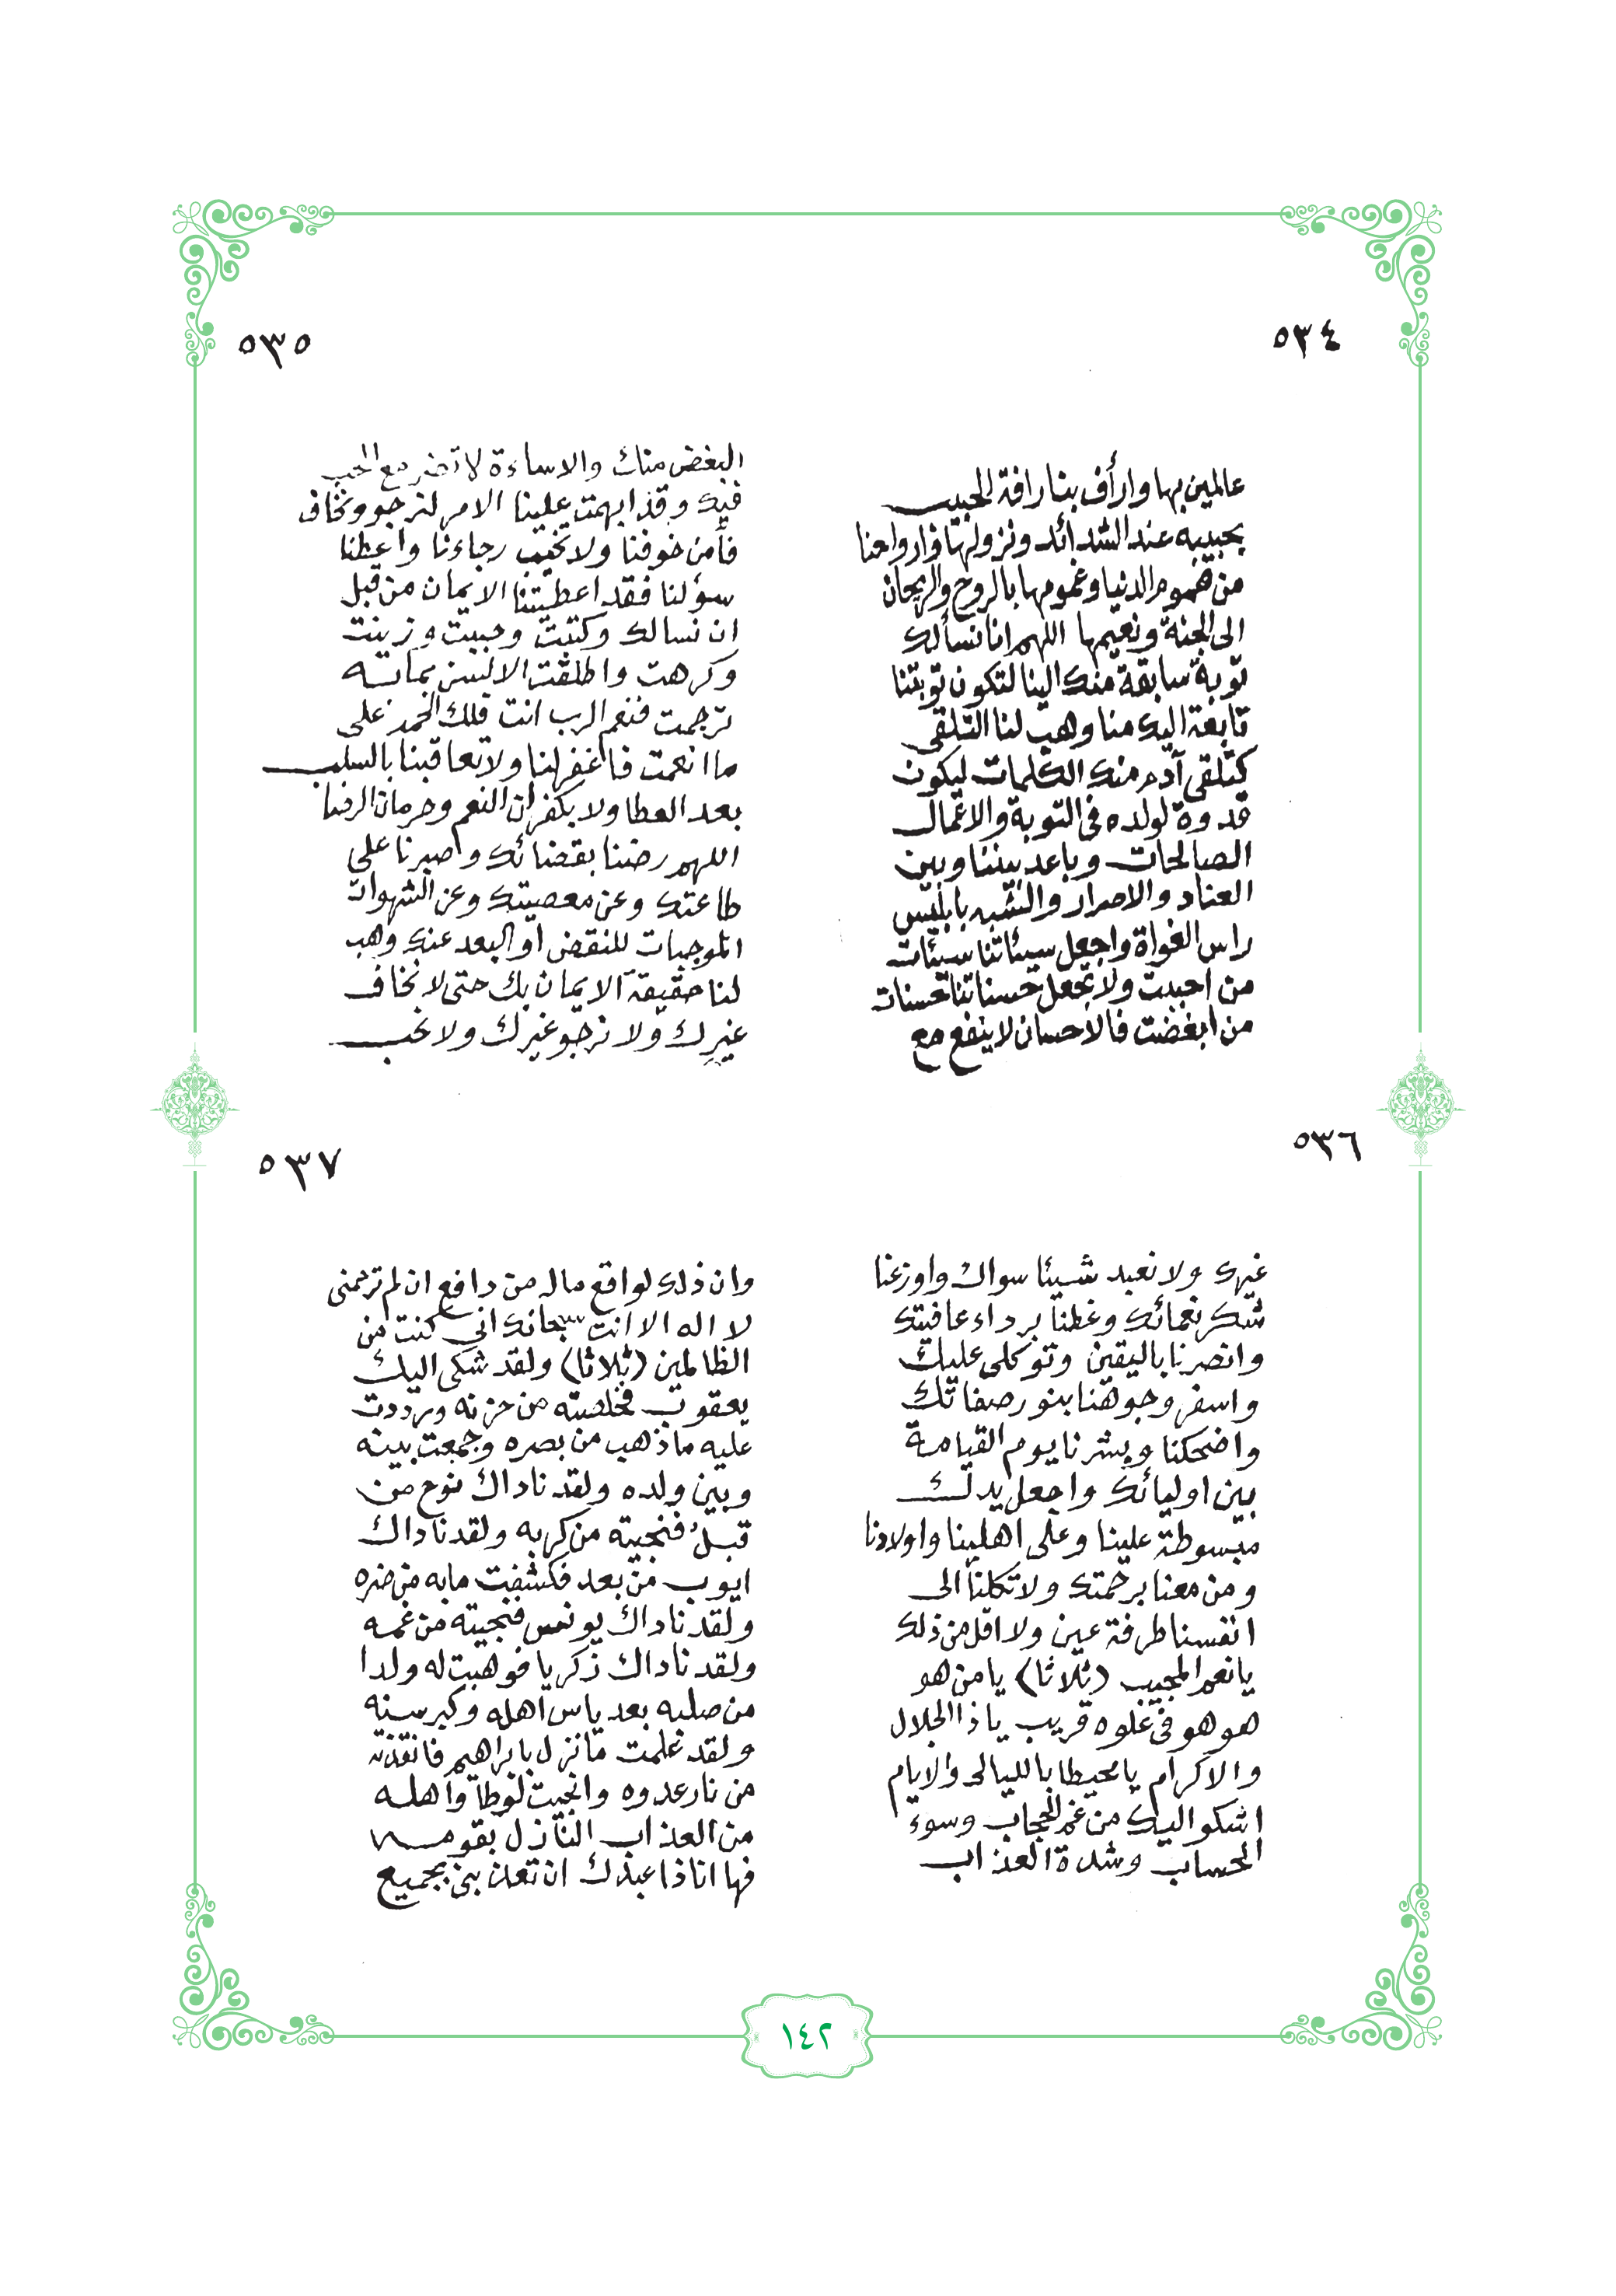 ٥٣٤
عالمين بها وارأف بنا رافة الحبيب
بحبيبه عند الشدائد ونزولها وارواحنا
من هموم الدنيا وغمومها بالروح والريحان
الى الجنة ونعيمها اللهم انا نسألك
توبة سابقة منك الينا لتكون توبتنا
تابعة اليك منا وهب لنا التلقى
كتلقى آدم منك الكلمات ليكون
قدوة لولده فى التوبة والاعمال
الصالحات وباعد بيننا وبين
العناد والاصرار والشبه بابليس
راس الغواة واجعل سيئاتنا سيئات
من احببت ولا تجعل حسناتنا حسنات
من ابغضت فالاحسان لا ينفع مع
٥٣٥
البغض مناك والاساءة لا تضر مع الحب
فيك وقد ابهمت علينا الامر لنرجو ونخاف
فأمن خوفنا ولا تخيب رجاءنا واعطنا
سؤلنا فقد اعطيتنا الايمان من قبل
ان نسالك وكتبت وحببت وزينت
وكرهت واطلقت الالسن بما به
ترجمت فنعم الرب انت فلك الحمد على
ما انعمت فاغفر لنا ولا تعاقبنا بالسلب
بعد العطا ولا بكفران النعم وحرمان الرضا
اللهم رضنا بقضائك واصبرنا على
طاعتك وعن معصيتك وعن الشهوات
الموجبات للنقض او البعد عنك وهب
لنا حقيقة الايمان بك حتى لا نخاف
غيرك ولا نرجو غيرك ولا نحب
٥٣٦
غيرك ولا نعبد شيئا سواك واوزعنا
شكر نعمائك وغطنا برداء عافيتك
وانصرنا باليقين وتوكلى عليك
واسفر وجوهنا بنور صفاتك
واضحكنا وبشرنا يوم القيامة
بين اوليائك واجعل يدك
مبسوطة علينا وعلى اهلينا واولادنا
ومن معنا برحمتك ولا تكلنا الى
انفسنا طرفة عين ولا اقل من ذلك
يا نعم المجيب (ثلاثا) يا من هو
هو هو فى علوه قريب يا ذا الجلال
والاكرام يا محيطا بالليالى والايام
اشكو اليك من غم الحجاب وسوء
الحساب وشدة العذاب
٥٣٧
وان ذلك لواقع ماله من دافع ان لم ترحمنى
لا اله الا انت سبحانك انى كنت من
الظالمين (ثلاثا) ولقد شكى اليك
يعقوب فخلصته من حزنه ورددت
عليه ما ذهب من بصره وجمعت بينه
وبين ولده ولقد ناداك نوح من
قبل فنجيته من كربه ولقد ناداك
ايوب من بعد فكشفت ما به من ضره
ولقد ناداك يونس فنجيته من غمه
ولقد ناداك زكريا فوهبت له ولدا
من صلبه بعد ياس اهله وكبر سنه
ولقد علمت ما نزل بابراهيم فانقذته
من نار عدوه وانجيت لوطا واهله
من العذاب النازل بقومه
فها انا ذا عبدك ان تعذبنى بجميع
١٤٢